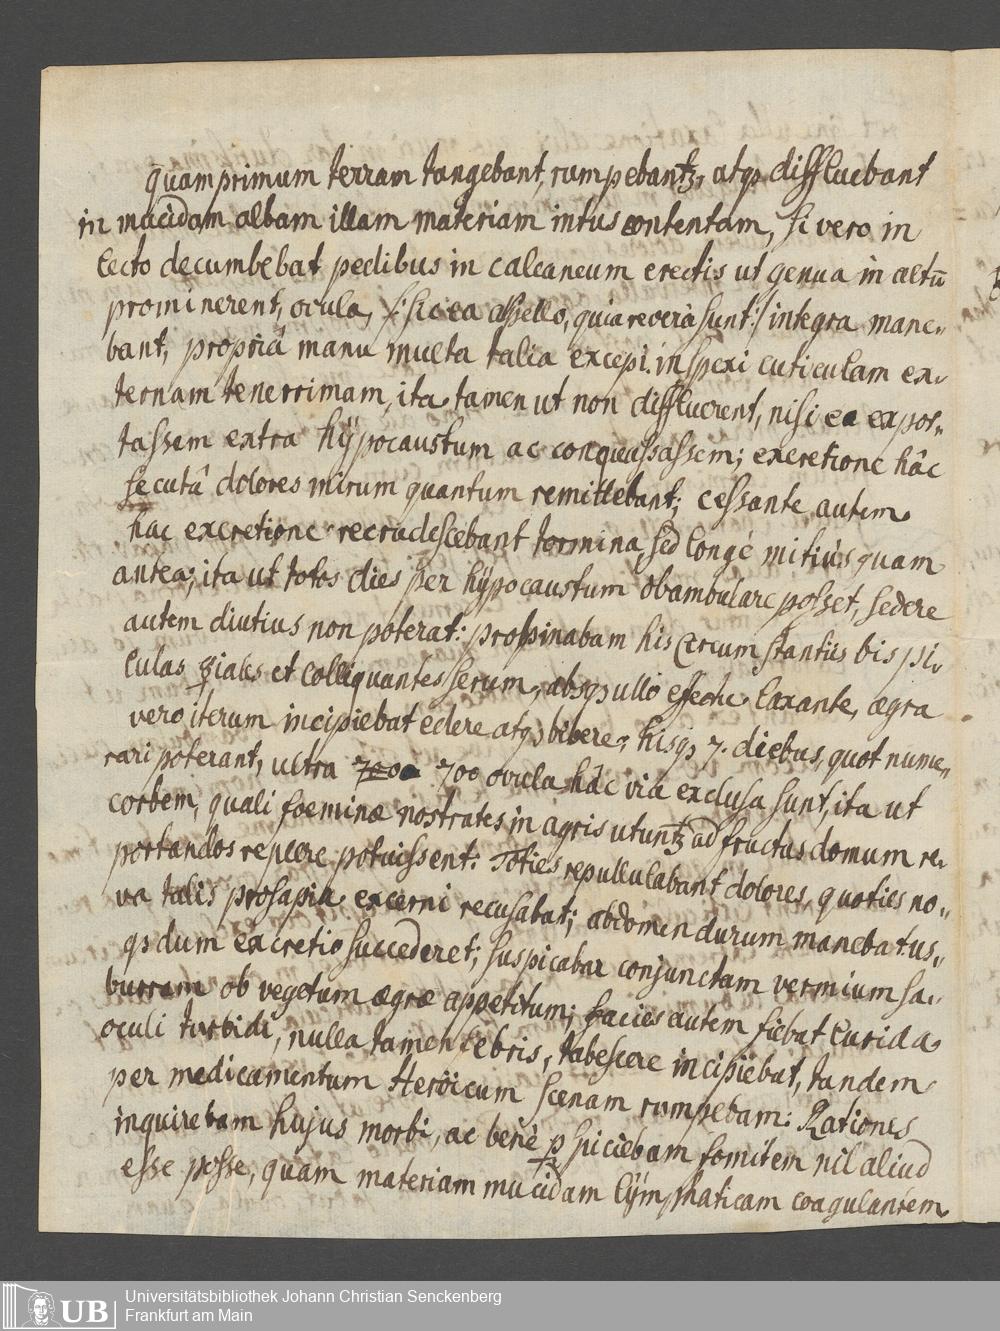 quamprimum terram tangebant, rumpebantꝫ, atqꝫ diffluebant
in mucidam albam illam materiam intus contentam, si vero in
lecto decumbebat pedibus in calcaneum erectis ut genua in altū
prominerent, ovula, /: sic ea appello, quia revera sunt :/ integra mane-
bant, propriâ manu multa talia excepi. inspexi cuticulam ex-
ternam tenerrimam, ita tamen ut non diffluerent, nisi ea expor-
tassem extra hÿpocaustum ac conquassassem; excretione hâc
secutâ dolores mirum quantum remittebant; cessante autem
hac excretione recrudescebant tormina, sed longè mitiùs quam
antea; ita ut totos dies per hÿpocaustum obambulare posset, sedere
autem diutius non poterat: propinabam his circumstantiis bis pi-
lulas ☿iales et colliquantes serum, absqꝫ ullo effectu laxante, ægra
vero iterum incipiebat edere atqꝫ bibere, hisqꝫ 7. diebus, quot nume-
rari poterant, ultra 7000 700 ovula hâc viâ exclusa sunt, ita ut
corbem, quali foeminæ nostrates in agris utuntꝫ ad fructus domum re-
portandos replere potuissent: Toties repullulabant dolores, quoties no-
va talis prosapia excerni recusabat; abdomen durum manebat us-
qꝫ dum excretio succederet; suspicabar conjunctam vermium sa-
burram ob vegetum ægræ appetitum; facies autem fiebat lurida
oculi turbidi, nulla tamen febris, tabescere incipiebat, tandem
per medicamentum Heröicum scenam rumpebam: Rationes
inquirebam hujus morbi, ac benè ꝑspiciebam fomitem nil aliud
esse posse, quam materiam mucidam lÿmphaticam coagulantem
UB
Universitätsbibliothek Johann Christian Senckenberg
Frankfurt am Main